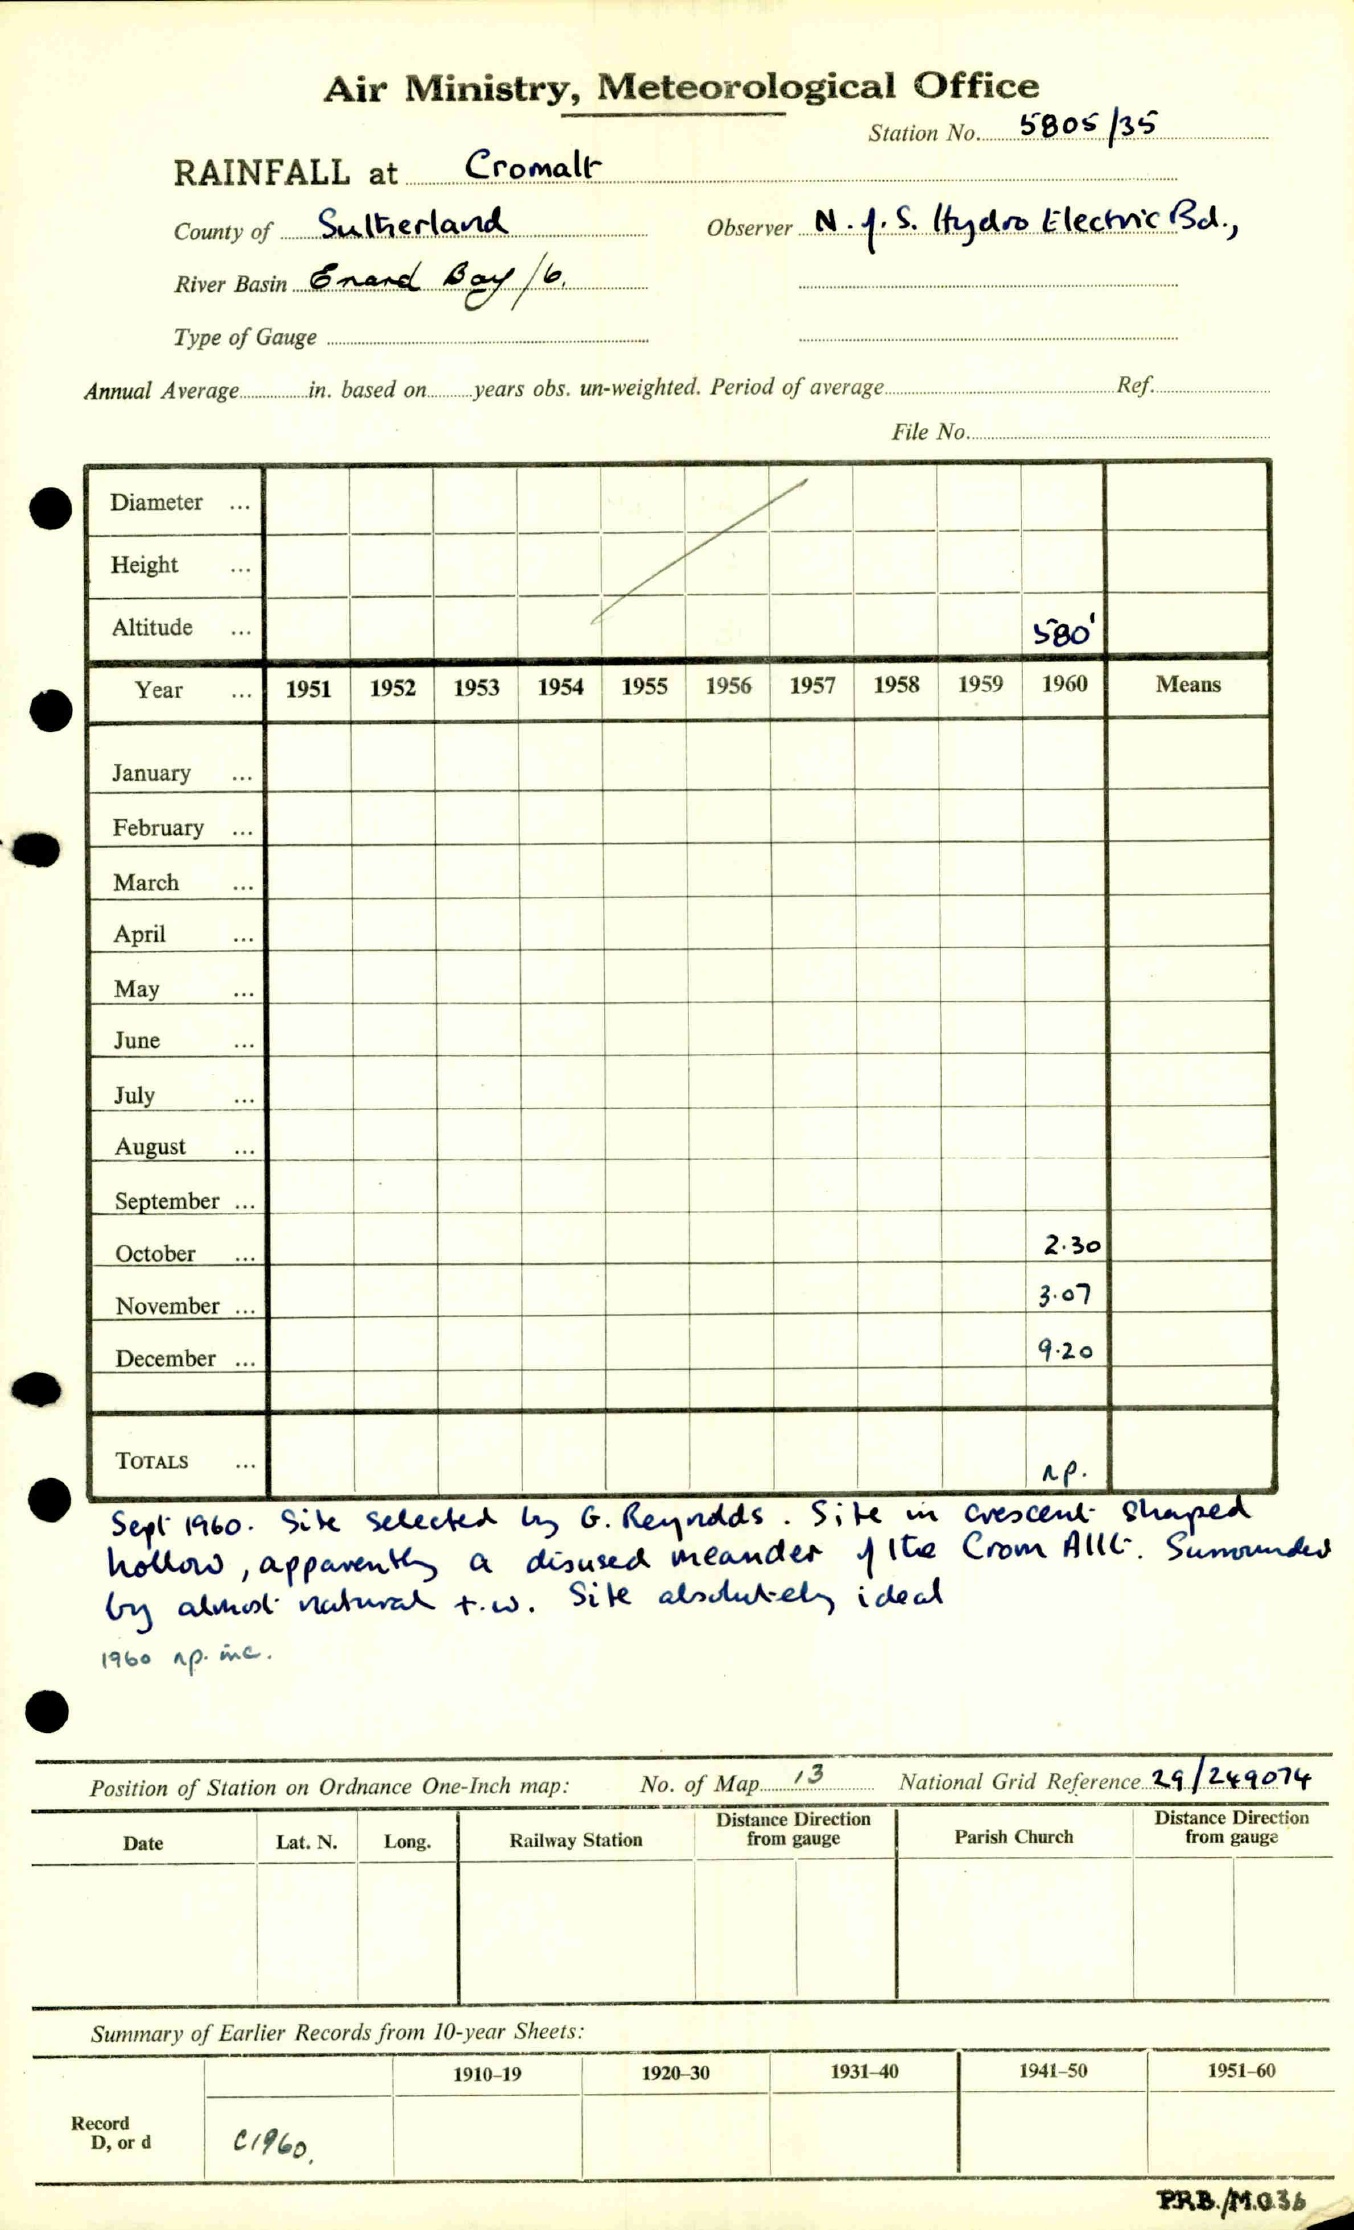 Air Ministry, Meteorological Office
Station No. 5805/35
RAINFALL at Cromalt
County of Sutherland Observer N. of S. Hydro Electric Bd.,
River Basin Enard Bay/6.
Type of Gauge
Annual Average in. based on years obs. un-weighted. Period of average Ref.
File No.
Diameter ...
Height ...
Altitude ... 580'
Year ... 1951 1952 1953 1954 1955 1956 1957 1958 1959 1960 Means
January ...
February ...
March ...
April ...
May ...
June ...
July ...
August ...
September ...
October ... 2.30
November ... 3.07
December ... 9.20
TOTALS ... n.p.
Sept 1960. Site selected by G. Reynolds. Site in crescent shaped
hollow, apparently a disused meander of the Crom Allt. Surrounded
by almost natural t.w. Site absolutely ideal
1960 n.p. inc.
Position of Station on Ordnance One-Inch map: No. of Map 13 National Grid Reference 29/249074
Date Lat. N. Long. Railway Station Distance Direction from gauge Parish Church Distance Direction from gauge
Summary of Earlier Records from 10-year Sheets:
1910–19 1920–30 1931–40 1941–50 1951–60
Record
D, or d C1960.
P.R.B./M.O.36